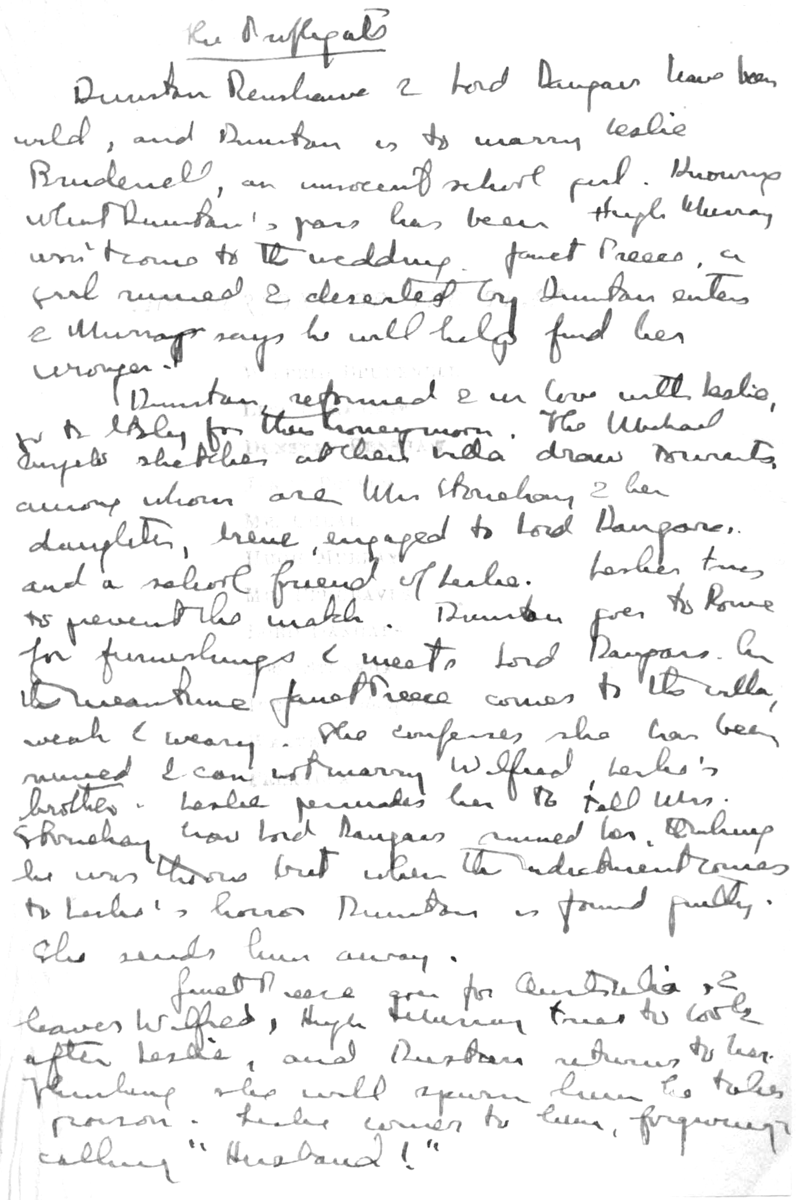 The Profligate
Dunstan Renshawe & Lord Dangars have been
wild, and Dunstan is to marry Leslie
Brudenell, an innocent school girl. Knowing
what Dunstan's pass has been Hugh Murray
won't come to the wedding. Janet Preece, a
girl ruined & deserted by Dunstan enters
& Murray says he will help find her
wronger.
Dunstan, reformed & in love with Leslie,
go to for their honeymoon. The Michael
Angelo sketches at their villa draw tourists,
among whom are Mrs Stonehay & her
daughter, Irene, engaged to Lord Dangars,
and a school friend of Leslie. Leslie tries
to prevent the match. Dunstan goes to Rome
for furnishings & meets Lord Dangars. In
the meantime Janet Preece comes to the villa,
weak & weary. She confesses she has been
ruined & can not marry Wilfred, Leslie's
brother. Leslie persuades her to tell Mrs.
Stonehay how Lord Dangars ruined her, thinking
he was the one but when the indictment comes
to Leslie's horror Dunstan is found guilty.
She sends him away.
Janet Preece goes for Australia, &
leaves Wilfred, Hugh Murray tries to look
after Leslie, and Dustan returns to her.
Thinking she will spurn him he takes
poison. Leslie comes to him, forgiving,
calling "Husband!"